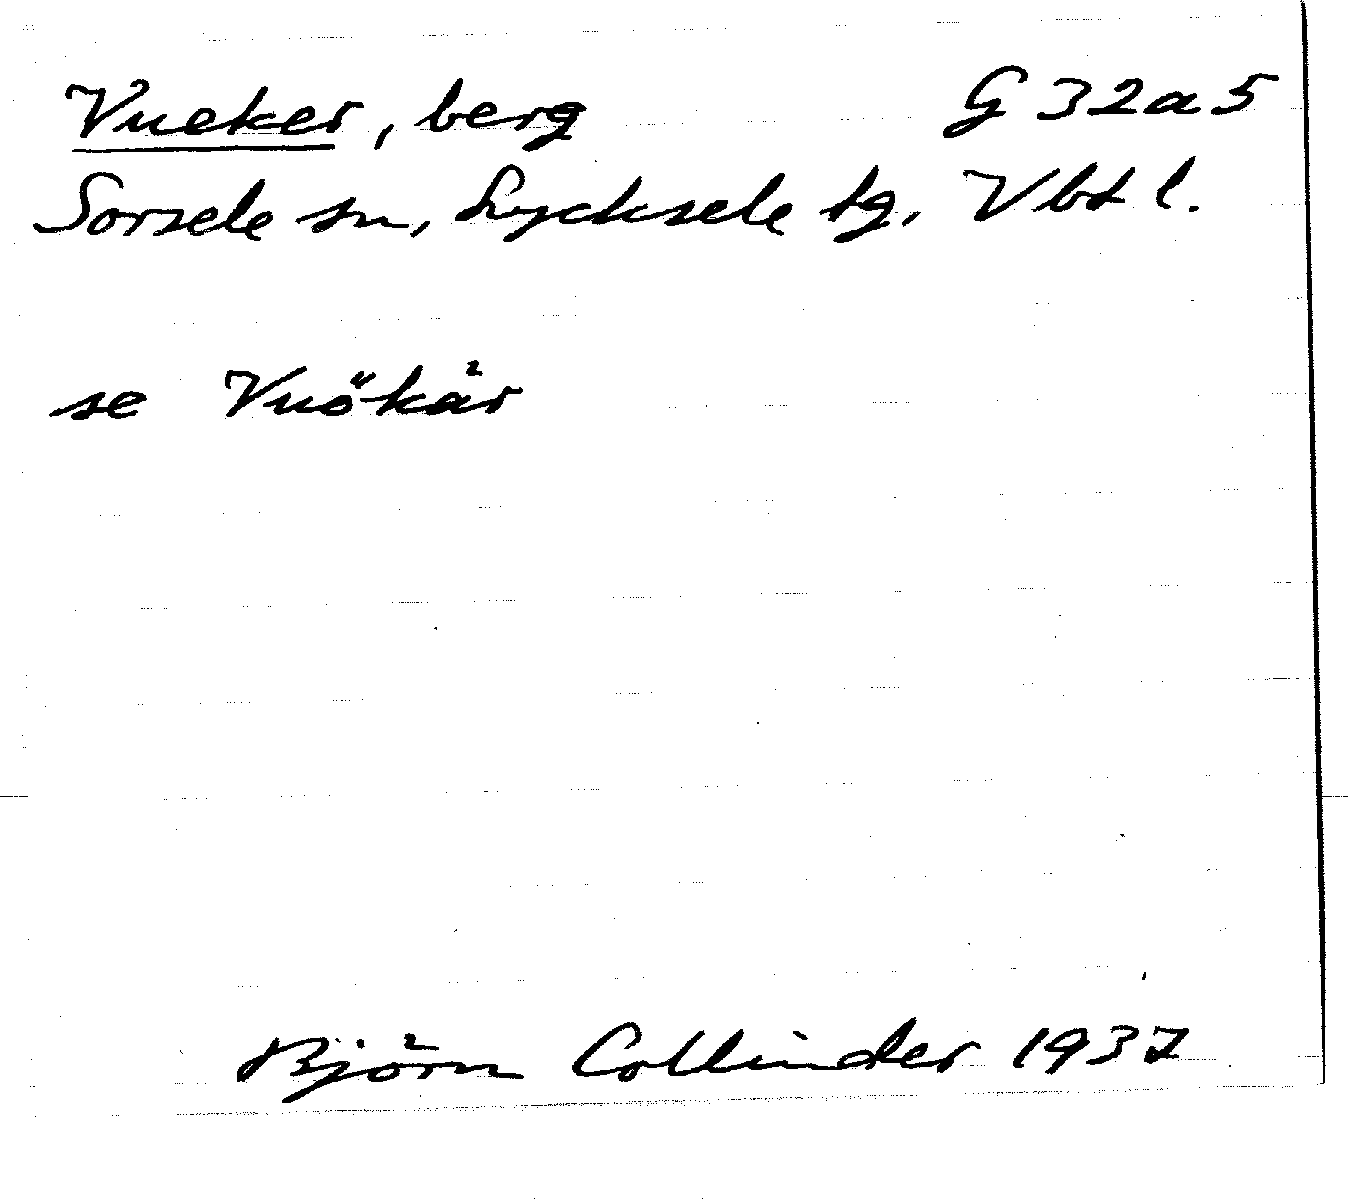 Vueker, berg G 32a5
Sorsele sn, Lycksele tg, Vbt l.
se Vuökär
Björn Collinder 1937